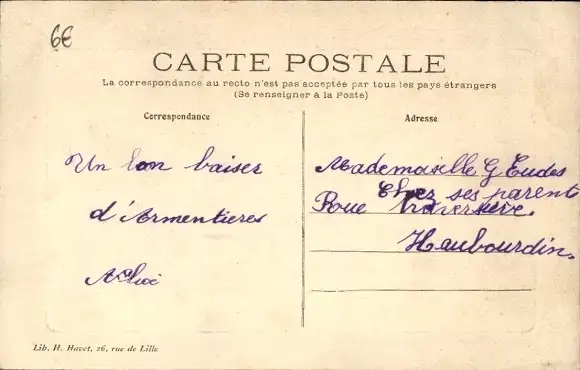 6€
CARTE POSTALE
La correspondance au recto n'est pas acceptée par tous les pays étrangers
(Se renseigner à la Poste)
Correspondance
Adresse
Un bon baiser
d'Armentieres
Mademaiselle G Eudes
Chez ses parent
Roue traversière.
Haubourdin.
Lib. H. Havet, 26, rue de Lille